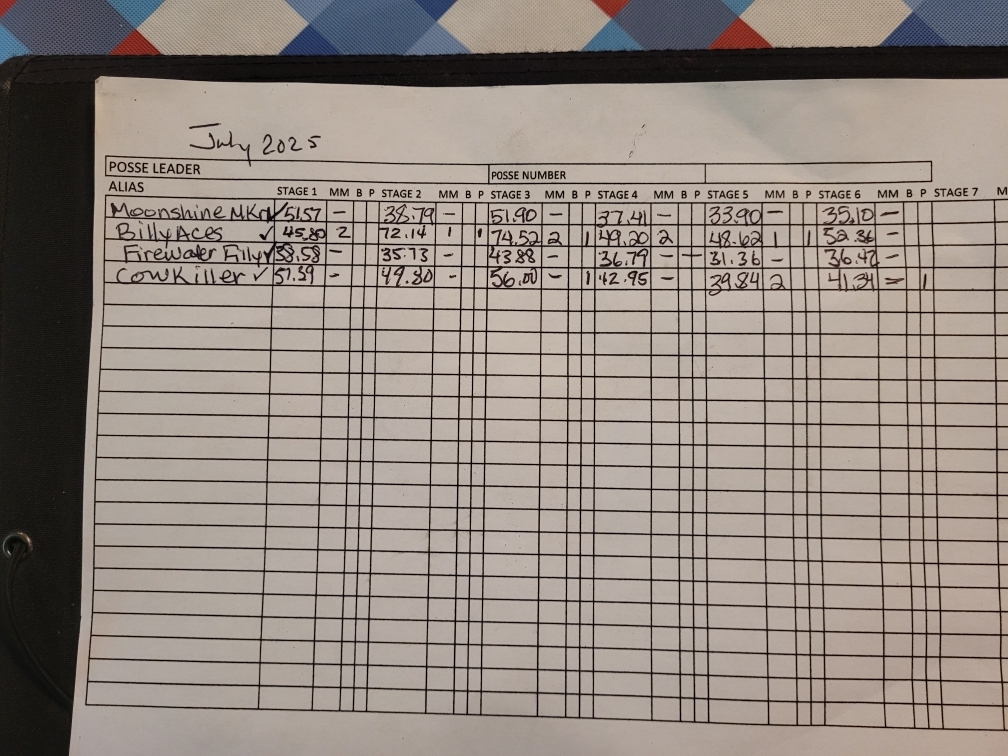 July 2025
POSSE LEADER POSSE NUMBER
ALIAS STAGE 1 MM B P STAGE 2 MM B P STAGE 3 MM B P STAGE 4 MM B P STAGE 5 MM B P STAGE 6 MM B P STAGE 7 M
Moonshine ✓ 51.57 - 38.79 - 51.90 - 37.41 - 33.90 - 35.10 -
Billy Aces ✓ 45.80 2 72.14 1 1 74.52 2 1 49.20 2 48.62 1 1 52.36 -
Firewater Filly ✓ 38.58 - 35.73 - 43.88 - 36.79 - - 31.36 - 36.47 -
CowKiller ✓ 57.39 - 49.80 - 56.00 - 1 42.95 - 39.84 2 41.34 - 1